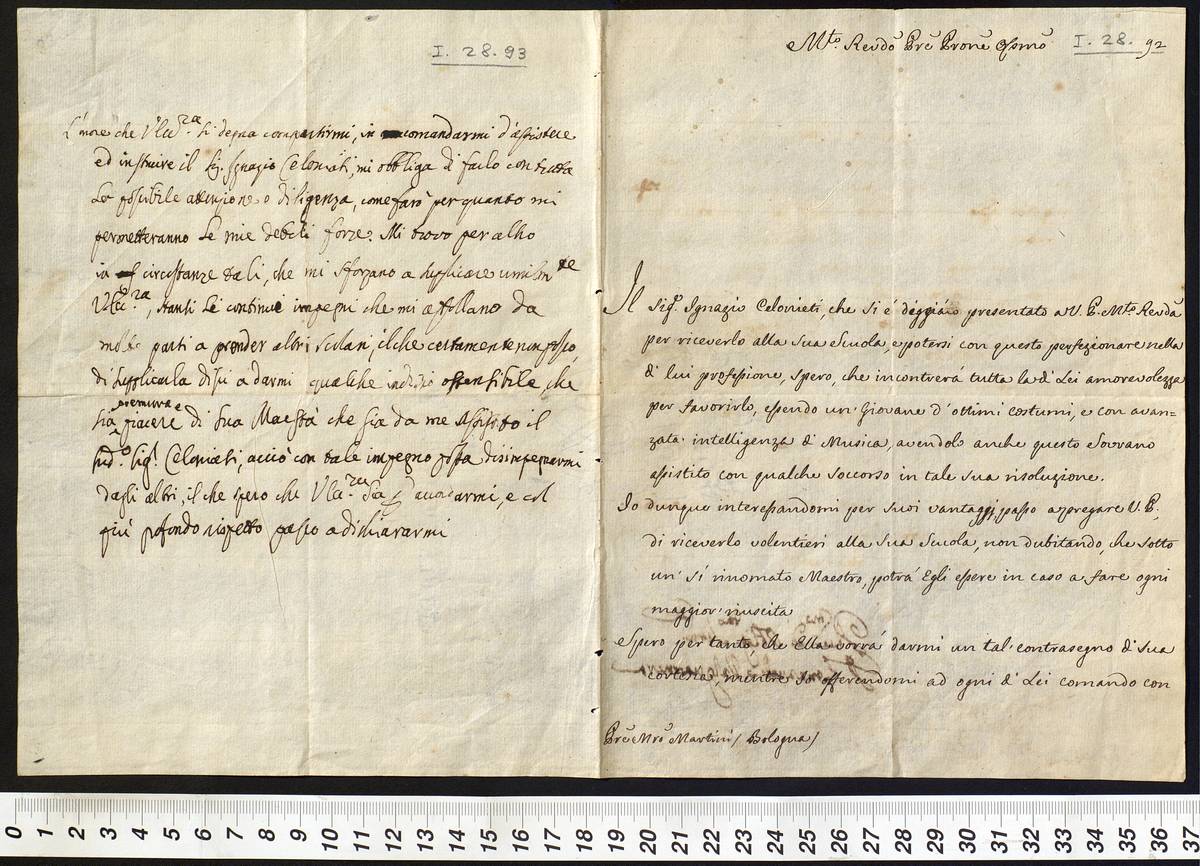 I. 28. 93
L'onore che V'Ecc.za si degna compartirmi, in comandarmi d'assistere
ed instruire il Sig. Ignazio Celoniati, mi obbliga di farlo con tutta
la possibile attenzione e diligenza, come farò per quanto mi
permetteranno le mie deboli forze. Mi trovo per altro
in circostanze tali, che mi sforzano a supplicare umilm.te
V'Ecc.za, stanti le continue impegni che mi affollano da
molte parti a prender altri scolari, il che certamente non posso,
di supplicarla di a darmi qualche indizio ostensibile, che
sia premura e piacere di Sua Maestà che sia da me assistito il
sud.o Sig.r Celoniati, acciò con tale impegno possa disimpegnarmi
dagli altri, il che spero che V'Ecc.za sia p accordarmi, e col
più profondo rispetto passo a dichiararmi
Mto. Revdo Pre Prone Ossmo
I. 28. 92
Il Sigr. Ignazio Celonieti, che si é deggiá presentato a V. P. Mto Revda
per riceverlo alla sua Scuola, e potersi con questo perfezionare nella
di lui professione, spero, che incontrerá tutta la di Lei amorevolezza
per favorirlo, essendo un Giovane d'ottimi costumi, e con avan=
zata intelligenza di Musica, avendolo anche questo Sovrano
assistito con qualche soccorso in tale sua risoluzione.
Io dunque interessandomi per suoi vantaggj, passo a pregare V. P.,
di riceverlo volentieri alla sua Scuola, non dubitando, che sotto
un' sí rinomato Maestro, potrá Egli essere in caso a fare ogni
maggior riuscita
Spero per tanto che Ella vorrá darmi un tal contrasegno di sua
cortesia, mentre Io offerendomi ad ogni di Lei comando con
Pre Mro Martini / Bologna /